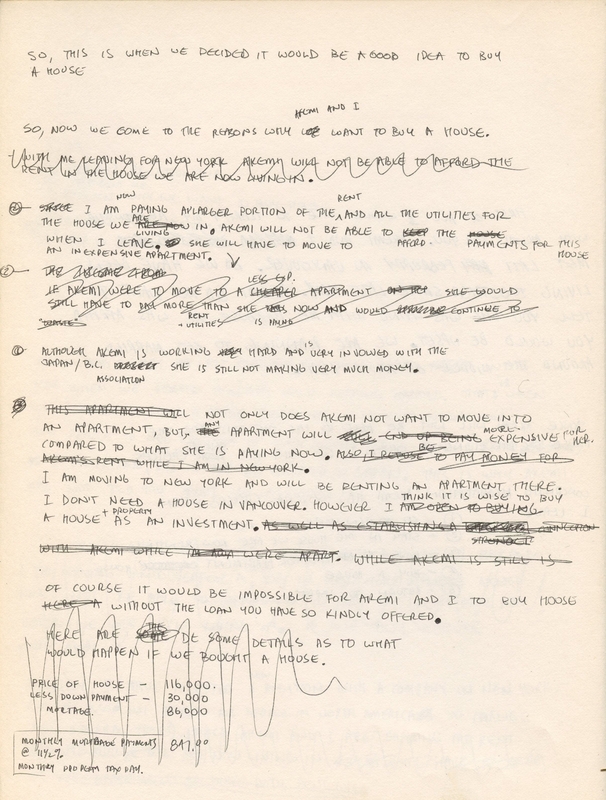 SO, THIS IS WHEN WE DECIDED IT WOULD BE A GOOD IDEA TO BUY
A HOUSE
AKEMI AND I
SO, NOW WE COME TO THE REASONS WHY WE WANT TO BUY A HOUSE.
WITH ME LEAVING FOR NEW YORK AKEMI WILL NOT BE ABLE TO AFFORD THE
RENT IN THE HOUSE WE ARE NOW LIVING IN.
NOW RENT
I AM PAYING A LARGER PORTION OF THE AND ALL THE UTILITIES FOR
ARE LIVING
THE HOUSE WE ARE NOW IN. AKEMI WILL NOT BE ABLE TO KEEP THE HOUSE
WHEN I LEAVE. SHE WILL HAVE TO MOVE TO AFFORD PAYMENTS FOR THIS HOUSE
AN INEXPENSIVE APARTMENT.
LESS EXP.
IF AKEMI WERE TO MOVE TO A CHEAPER APARTMENT SHE WOULD
STILL HAVE TO PAY MORE THAN SHE NOW AND WOULD CONTINUE TO
RENT + UTILITIES IS PAYING
IS
ALTHOUGH AKEMI IS WORKING VERY HARD AND VERY INVOLVED WITH THE
JAPAN/B.C. SHE IS STILL NOT MAKING VERY MUCH MONEY.
ASSOCIATION
THIS APARTMENT WILL NOT ONLY DOES AKEMI NOT WANT TO MOVE INTO
ANY MORE FOR HER.
AN APARTMENT, BUT, THE APARTMENT WILL END UP BEING EXPENSIVE
BE
COMPARED TO WHAT SHE IS PAYING NOW. ALSO, I REFUSE TO PAY MONEY FOR
AKEMI'S RENT WHILE I AM IN NEW YORK.
I AM MOVING TO NEW YORK AND WILL BE RENTING AN APARTMENT THERE.
THINK IT IS WISE TO BUY
I DON'T NEED A HOUSE IN VANCOUVER. HOWEVER I AM OPEN TO BUYING
+ PROPERTY
A HOUSE AS AN INVESTMENT. AS WELL AS ESTABLISHING A CONNECTION
STRONGER
WITH AKEMI WHILE WERE APART. WHILE AKEMI IS STILL IS
OF COURSE IT WOULD BE IMPOSSIBLE FOR AKEMI AND I TO BUY HOUSE
HERE A WITHOUT THE LOAN YOU HAVE SO KINDLY OFFERED.
THE
HERE ARE SOME DETAILS AS TO WHAT
WOULD HAPPEN IF WE BOUGHT A HOUSE.
PRICE OF HOUSE - 116,000.
LESS DOWN PAYMENT - 30,000
MORTAGE. 86,000
MONTHLY MORTGAGE PAYMENTS 847.00
@ 11 1/2%